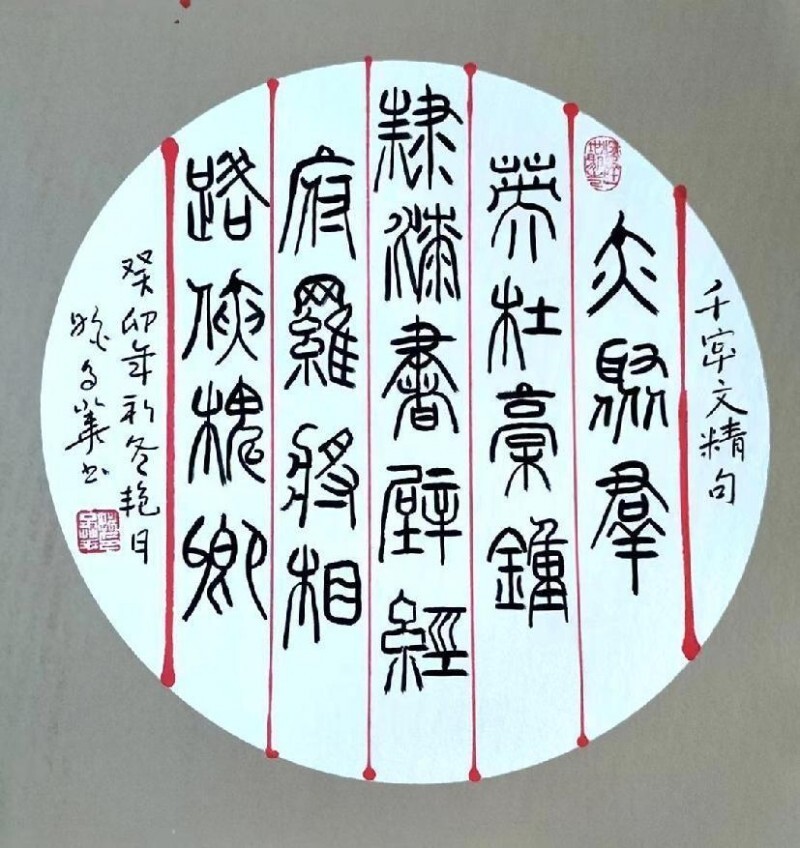 千字文精句
亦聚羣
英杜稾鍾
隸漆書壁經
府羅將相
路俠槐卿
癸卯年初冬艳日
華书